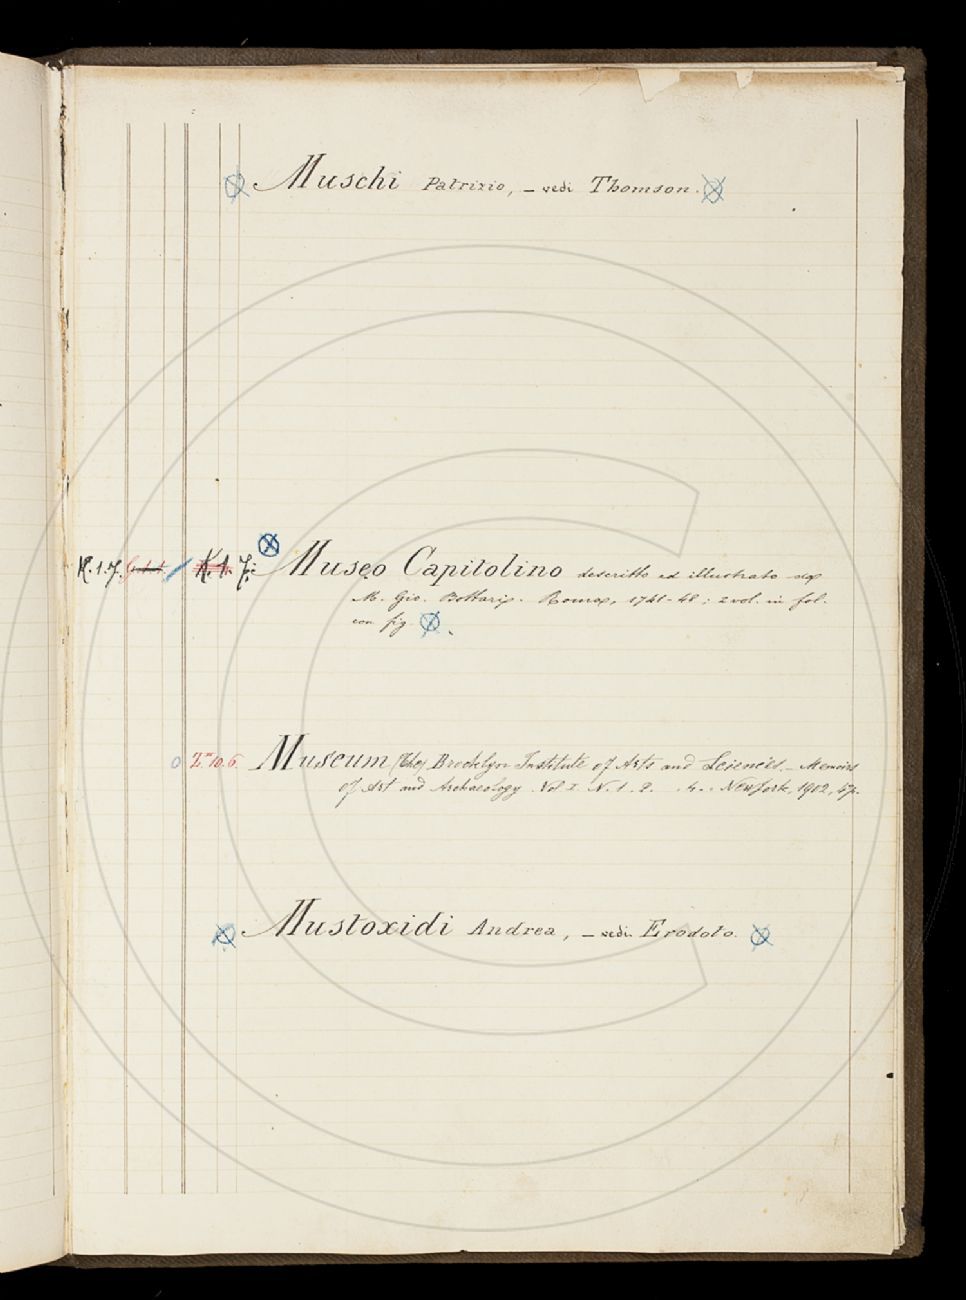 Muschi Patrizio, – vedi Thomson.
K.1.7. K.1.7. Museo Capitolino descritto ed illustrato da
M. Gio. Bottari. Roma, 1741-48; 2 vol. in fol.
con fig.
Z.III.10.6. Museum (The) Brooklyn Institute of Arts and Sciences. – Memoirs
of Art and Archaeology. Vol. I. N. 1. 2. . 4. . New York, 1902, 4°.
Mustoxidi Andrea, – vedi Erodoto.